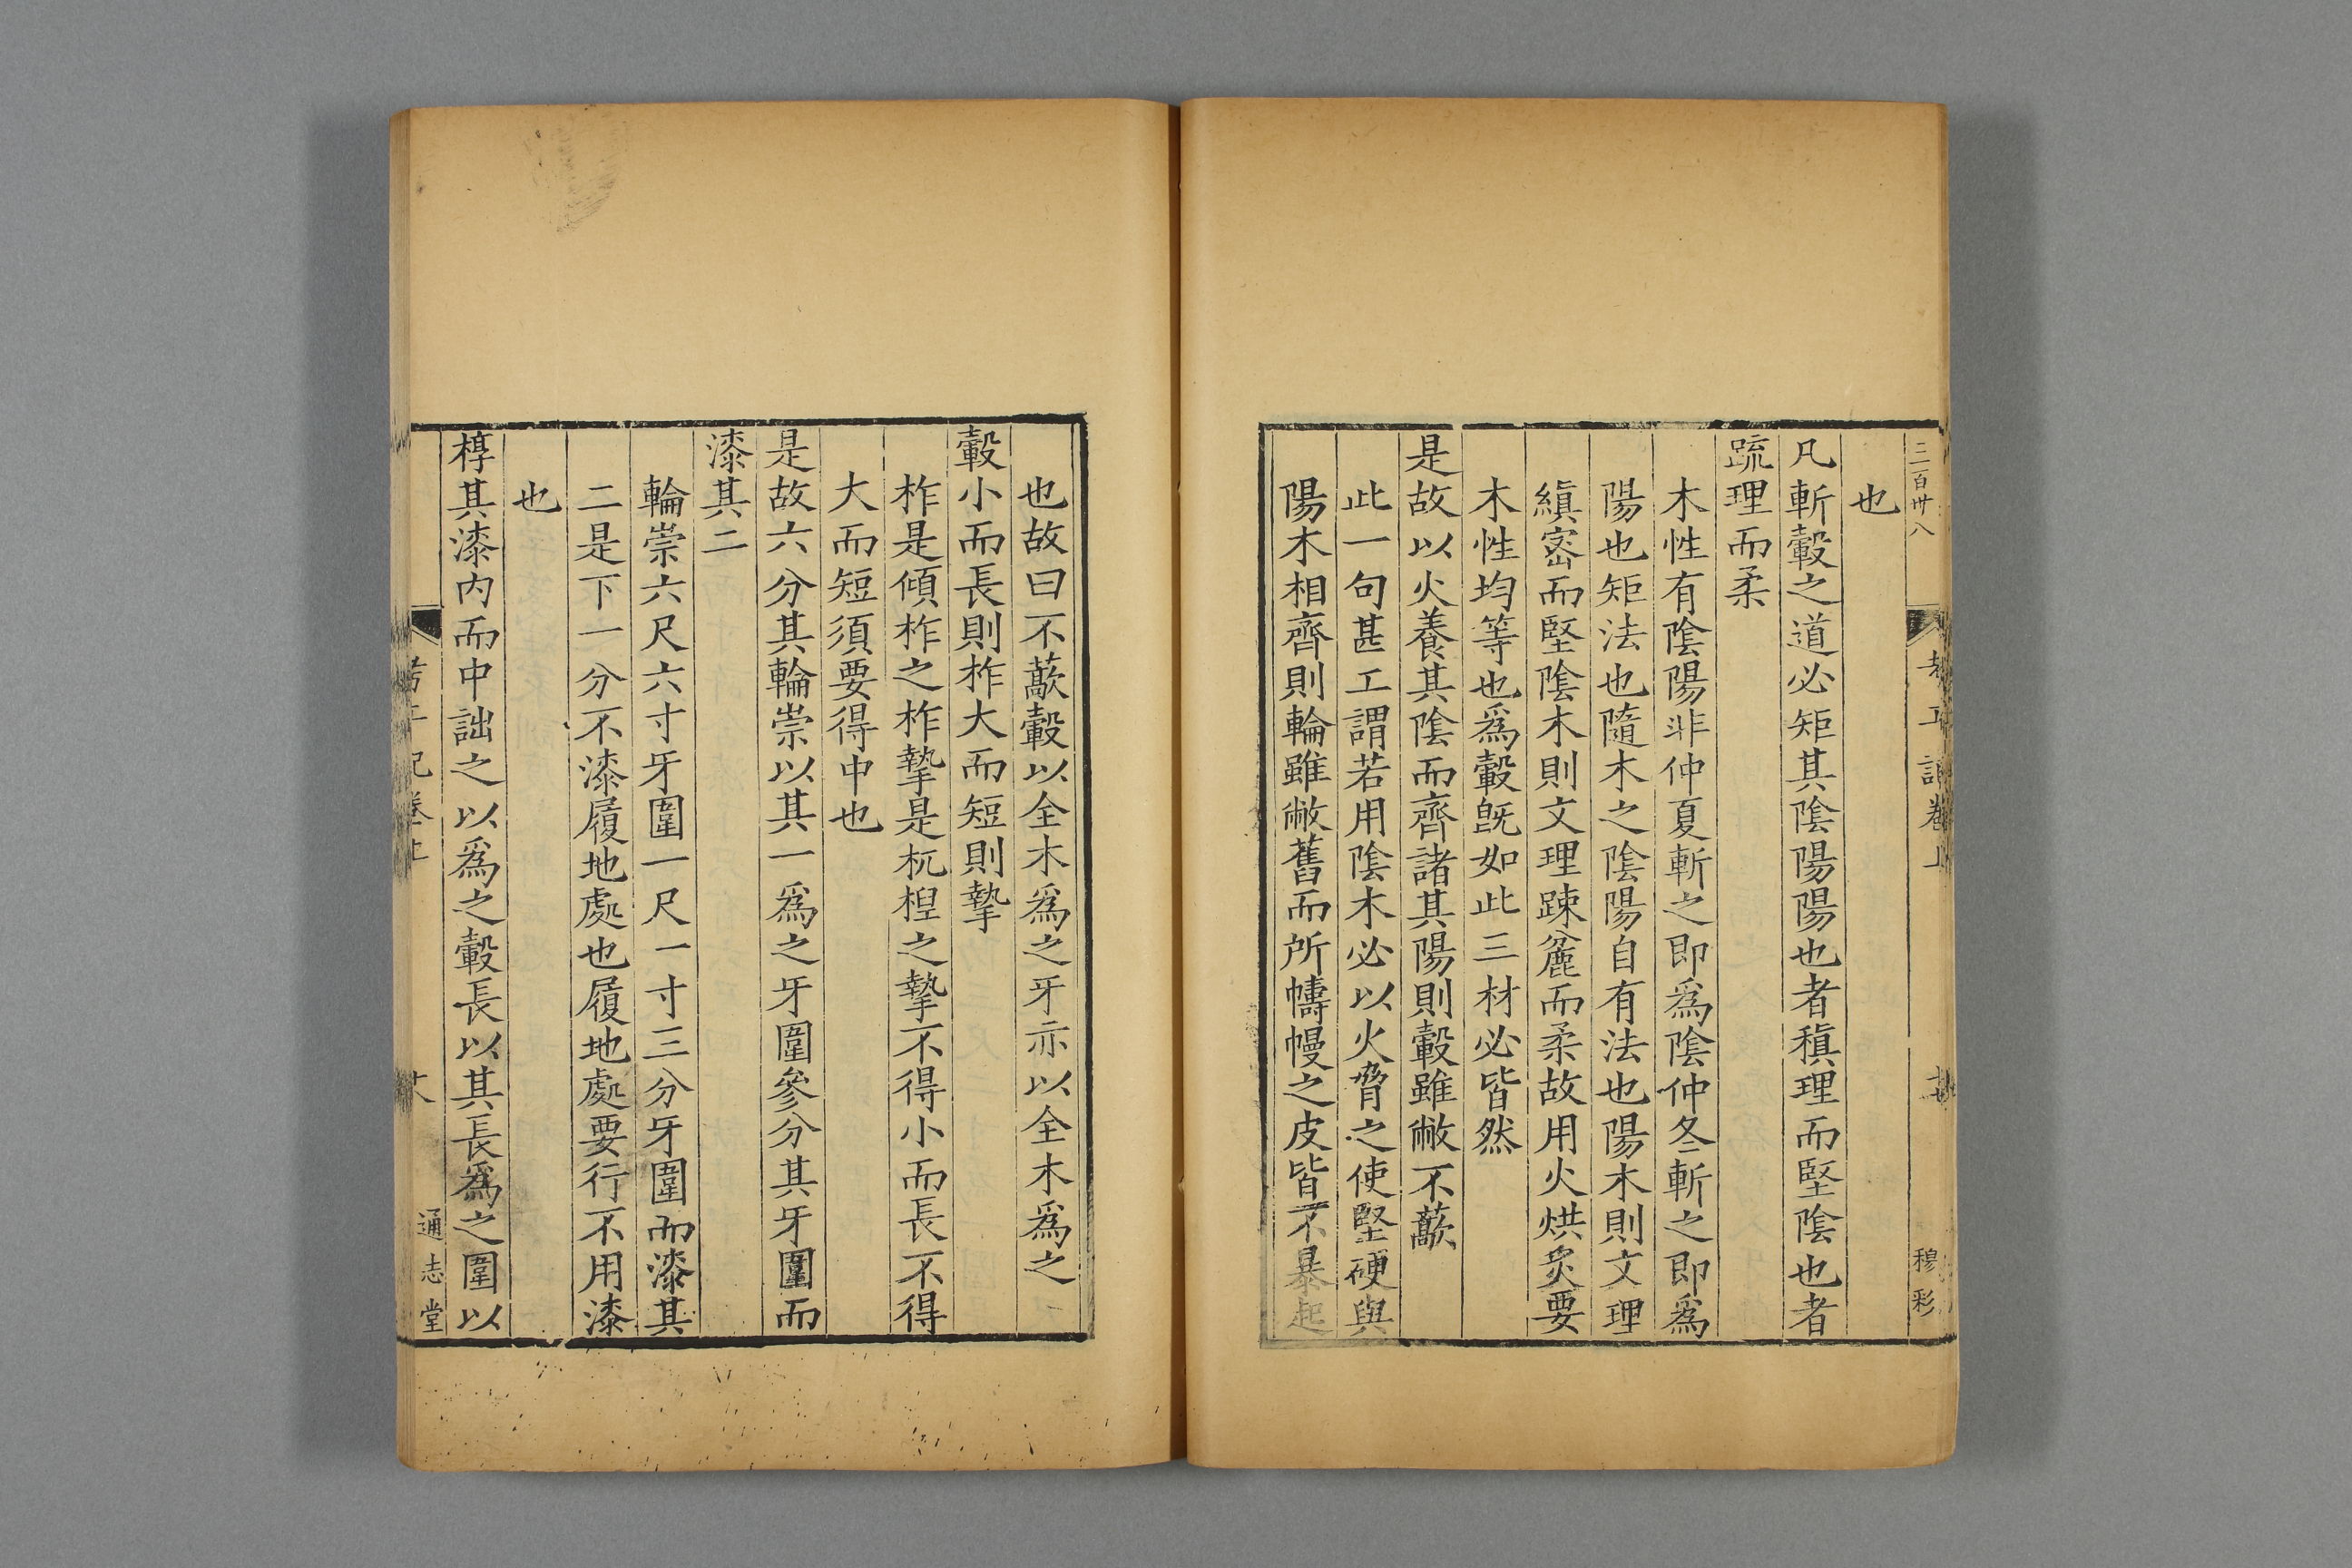 三百卅八
考工記卷上
穆彩
也
凡斬轂之道必矩其陰陽陽也者稹理而堅陰也者
疏理而柔
木性有陰陽非仲夏斬之即爲陰仲冬斬之即爲
陽也矩法也隨木之陰陽自有法也陽木則文理
縝密而堅陰木則文理踈麄而柔故用火烘炙要
木性均等也爲轂旣如此三材必皆然
是故以火養其陰而齊諸其陽則轂雖敝不藃
此一句甚工謂若用陰木必以火脅之使堅硬與
陽木相齊則輪雖敝舊而所幬幔之皮皆不暴起
也故曰不藃轂以全木爲之牙亦以全木爲之
轂小而長則柞大而短則摯
柞是傾柞之柞摯是杌揑之摯不得小而長不得
大而短須要得中也
是故六分其輪崇以其一爲之牙圍參分其牙圍而
漆其二
輪崇六尺六寸牙圍一尺一寸三分牙圍而漆其
二是下一分不漆履地處也履地處要行不用漆
也
椁其漆内而中詘之以爲之轂長以其長爲之圍以
考工記卷上
通志堂